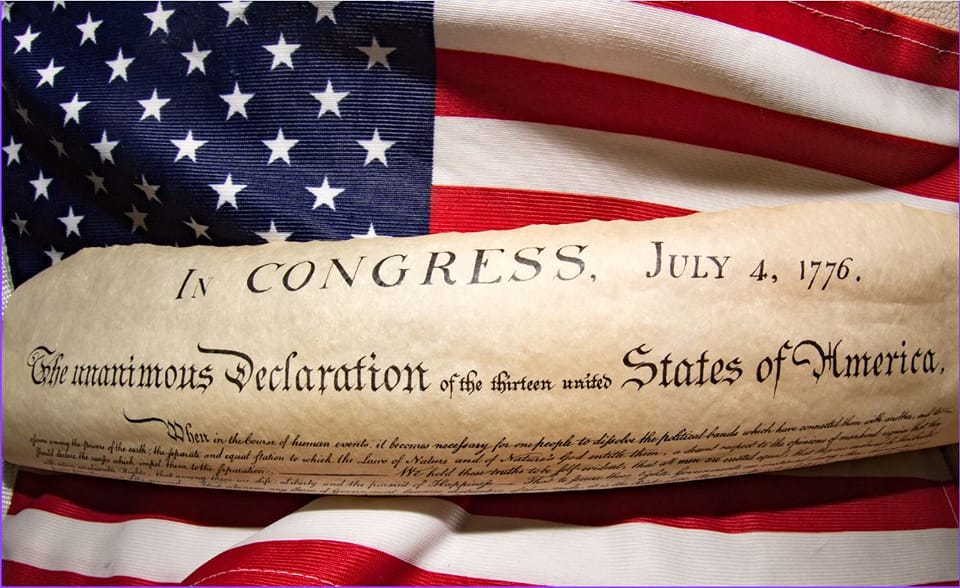 In CONGRESS, July 4, 1776.
The unanimous Declaration of the thirteen united States of America,
When in the Course of human events, it becomes necessary for one people to dissolve the political bands which have connected them with another, and to
among the powers of the earth, the separate and equal station to which the Laws of Nature and of Nature's God entitle them, a decent respect to the opinions of mankind requires that they
should declare the causes which impel them to the separation. We hold these truths to be self-evident, that all men are created equal, that they are
that among these are Life, Liberty and the pursuit of Happiness. That to secure these